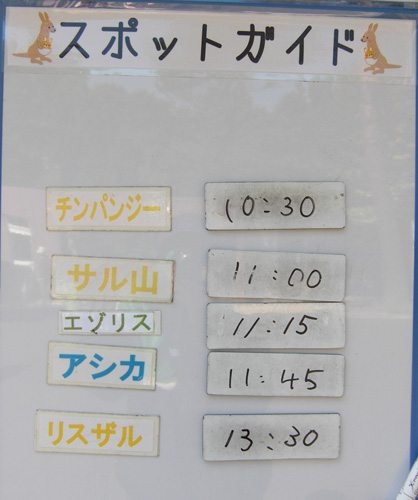 スポットガイド
チンパンジー 10:30
サル山 11:00
エゾリス 11:15
アシカ 11:45
リスザル 13:30